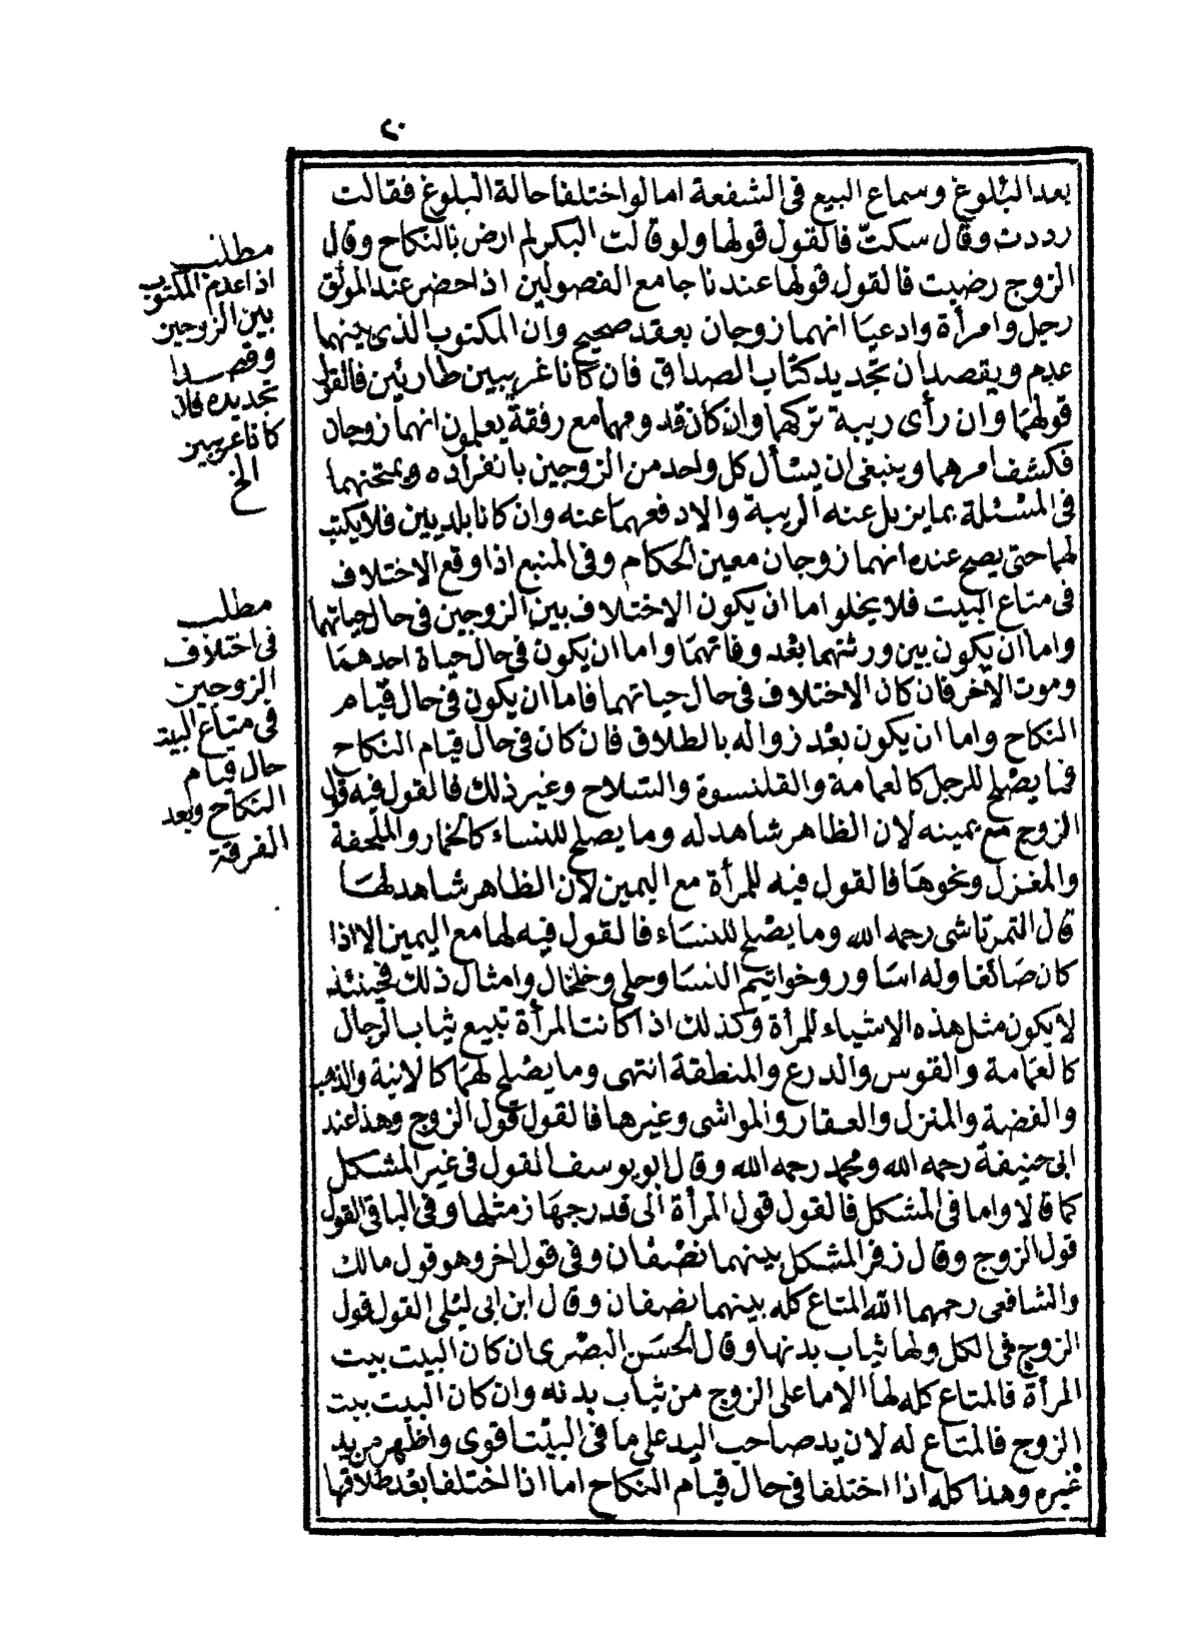 ٢٠
بعد البلوغ وسماع البيع فى الشفعة اما لو اختلفا حالة البلوغ فقالت
رددت وقال سكتّ فالقول قولها ولو قالت البكر لم ارض بالنكاح وقال
الزوج رضيت فالقول قولها عندنا جامع الفصولين اذا حضر عند الموثق
رجل وامرأة وادعيا انهما زوجان بعقد صحيح وان المكتوب الذى بينهما
عدم ويقصدان تجديد كتاب الصداق فان كانا غريبين طارئين فالقول
قولهما وان رأى ريبة تركهما وان كان قدومهما مع رفقة يعلمون انهما زوجان
فكشف امرهما وينبغى ان يسأل كل واحد من الزوجين بانفراده ويمتحنهما
فى المسئلة بما يزيل عنه الريبة والا دفعهما عنه وان كانا بلديين فلا يكتب
لهما حتى يصح عنده انهما زوجان معين الحكام وفى المنبع اذا وقع الاختلاف
فى متاع البيت فلا يخلو اما ان يكون الاختلاف بين الزوجين فى حال حياتهما
واما ان يكون بين ورثتهما بعد وفاتهما واما ان يكون فى حال حياة احدهما
وموت الآخر فان كان الاختلاف فى حال حياتهما فاما ان يكون فى حال قيام
النكاح واما ان يكون بعد زواله بالطلاق فان كان فى حال قيام النكاح
فما يصلح للرجل كالعمامة والقلنسوة والسلاح وغير ذلك فالقول فيه قول
الزوج مع يمينه لان الظاهر شاهد له وما يصلح للنساء كالخمار والملحفة
والمغزل ونحوها فالقول فيه للمرأة مع اليمين لان الظاهر شاهد لها
قال التمرتاشى رحمه الله وما يصلح للنساء فالقول فيه لها مع اليمين الا اذا
كان صائغا وله اساور وخواتيم النسا وحلى وخلخال وامثال ذلك فحينئذ
لا يكون مثل هذه الاشياء للمرأة وكذلك اذا كانت المرأة تبيع ثياب الرجال
كالعمامة والقوس والدرع والمنطقة انتهى وما يصلح لهما كالانية والذهب
والفضة والمنزل والعقار والمواشى وغيرها فالقول قول الزوج وهذا عند
ابى حنيفة رحمه الله ومحمد رحمه الله وقال ابو يوسف القول فى غير المشكل
كما قالا واما فى المشكل فالقول قول المرأة الى قدر جهاز مثلها وفى الباقى القول
قول الزوج وقال زفر المشكل بينهما نصفان وفى قول اخر وهو قول مالك
والشافعى رحمهما الله المتاع كله بينهما نصفان وقال ابن ابى ليلى القول قول
الزوج فى الكل ولها ثياب بدنها وقال الحسن البصرى ان كان البيت بيت
المرأة فالمتاع كله لها الا ما على الزوج من ثياب بدنه وان كان البيت بيت
الزوج فالمتاع له لان يد صاحب اليد على ما فى البيت اقوى واظهر من يد
غيره وهذا كله اذا اختلفا فى حال قيام النكاح اما اذا اختلفا بعد طلاقها
مطلب
اذا عدم المكتوب
بين الزوجين
وقصدا
تجديده فان
كانا غريبين
الخ
مطلب
فى اختلاف
الزوجين
فى متاع البيت
حال قيام
النكاح وبعد
الفرقة